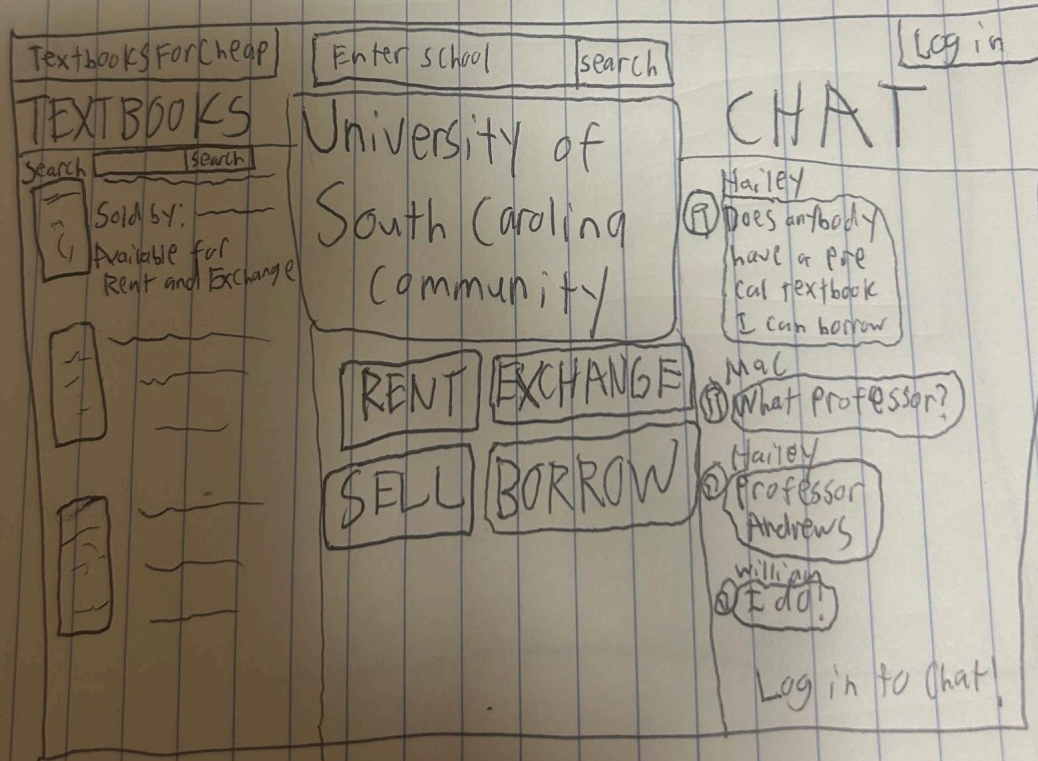 TextbooksForCheap
Enter school
search
Log in
TEXTBOOKS
Search
search
Sold by:
Available for
Rent and Exchange
University of
South Carolina
Community
RENT
EXCHANGE
SELL
BORROW
CHAT
Hailey
Does anybody
have a pre
cal textbook
I can borrow
Mac
What professor?
Hailey
Professor
Andrews
William
I do!
Log in to Chat!